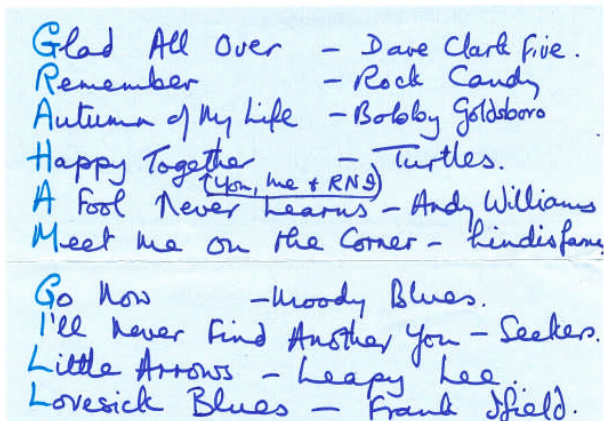 Glad All Over - Dave Clark Five.
Remember - Rock Candy
Autumn of My Life - Bobby Goldsboro
Happy Together - Turtles.
(You, me + RNI)
A Fool Never Learns - Andy Williams
Meet me on the Corner - Lindisfarne
Go Now - Moody Blues.
I'll never Find Another You - Seekers.
Little Arrows - Leapy Lee.
Lovesick Blues - Frank Ifield.